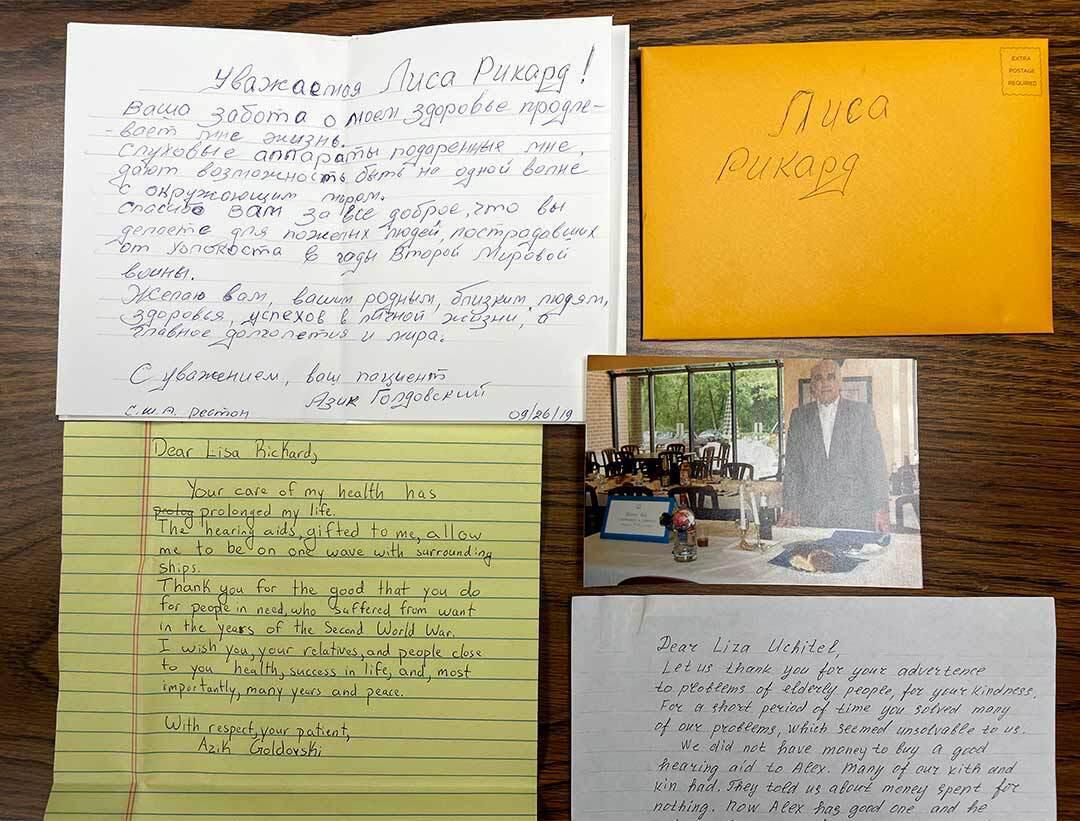 Уважаемая Лиса Рикард!
Ваша забота о моем здоровье продле-
-вает мне жизнь.
Слуховые аппараты подаренные мне,
дают возможность быть на одной волне
с окружающим миром.
Спасибо вам за все доброе, что вы
делаете для пожелых людей, пострадавших
от Холокоста в годы Второй Мировой
войны.
Желаю вам, вашим родным, близким людям,
здоровья, успехов в личной жизни, а
главное долголетия и мира.
С уважением, ваш пациент
Азик Голдовский
С.Ш.А. Рестон 09/26/19
EXTRA
POSTAGE
REQUIRED
Лиса
Рикард
Dear Lisa Rickard,
Your care of my health has
prolog prolonged my life.
The hearing aids, gifted to me, allow
me to be on one wave with surrounding
ships.
Thank you for the good that you do
for people in need, who suffered from want
in the years of the Second World War.
I wish you, your relatives, and people close
to you health, success in life, and, most
importantly, many years and peace.
With respect, your patient,
Azik Goldovski
Dear Liza Uchitel,
Let us thank you for your advertence
to problems of elderly people, for your kindness.
For a short period of time you solved many
of our problems, which seemed unsolvable to us.
We did not have money to buy a good
hearing aid to Alex. Many of our kith and
kin had. They told us about money spent for
nothing. Now Alex has good one and he